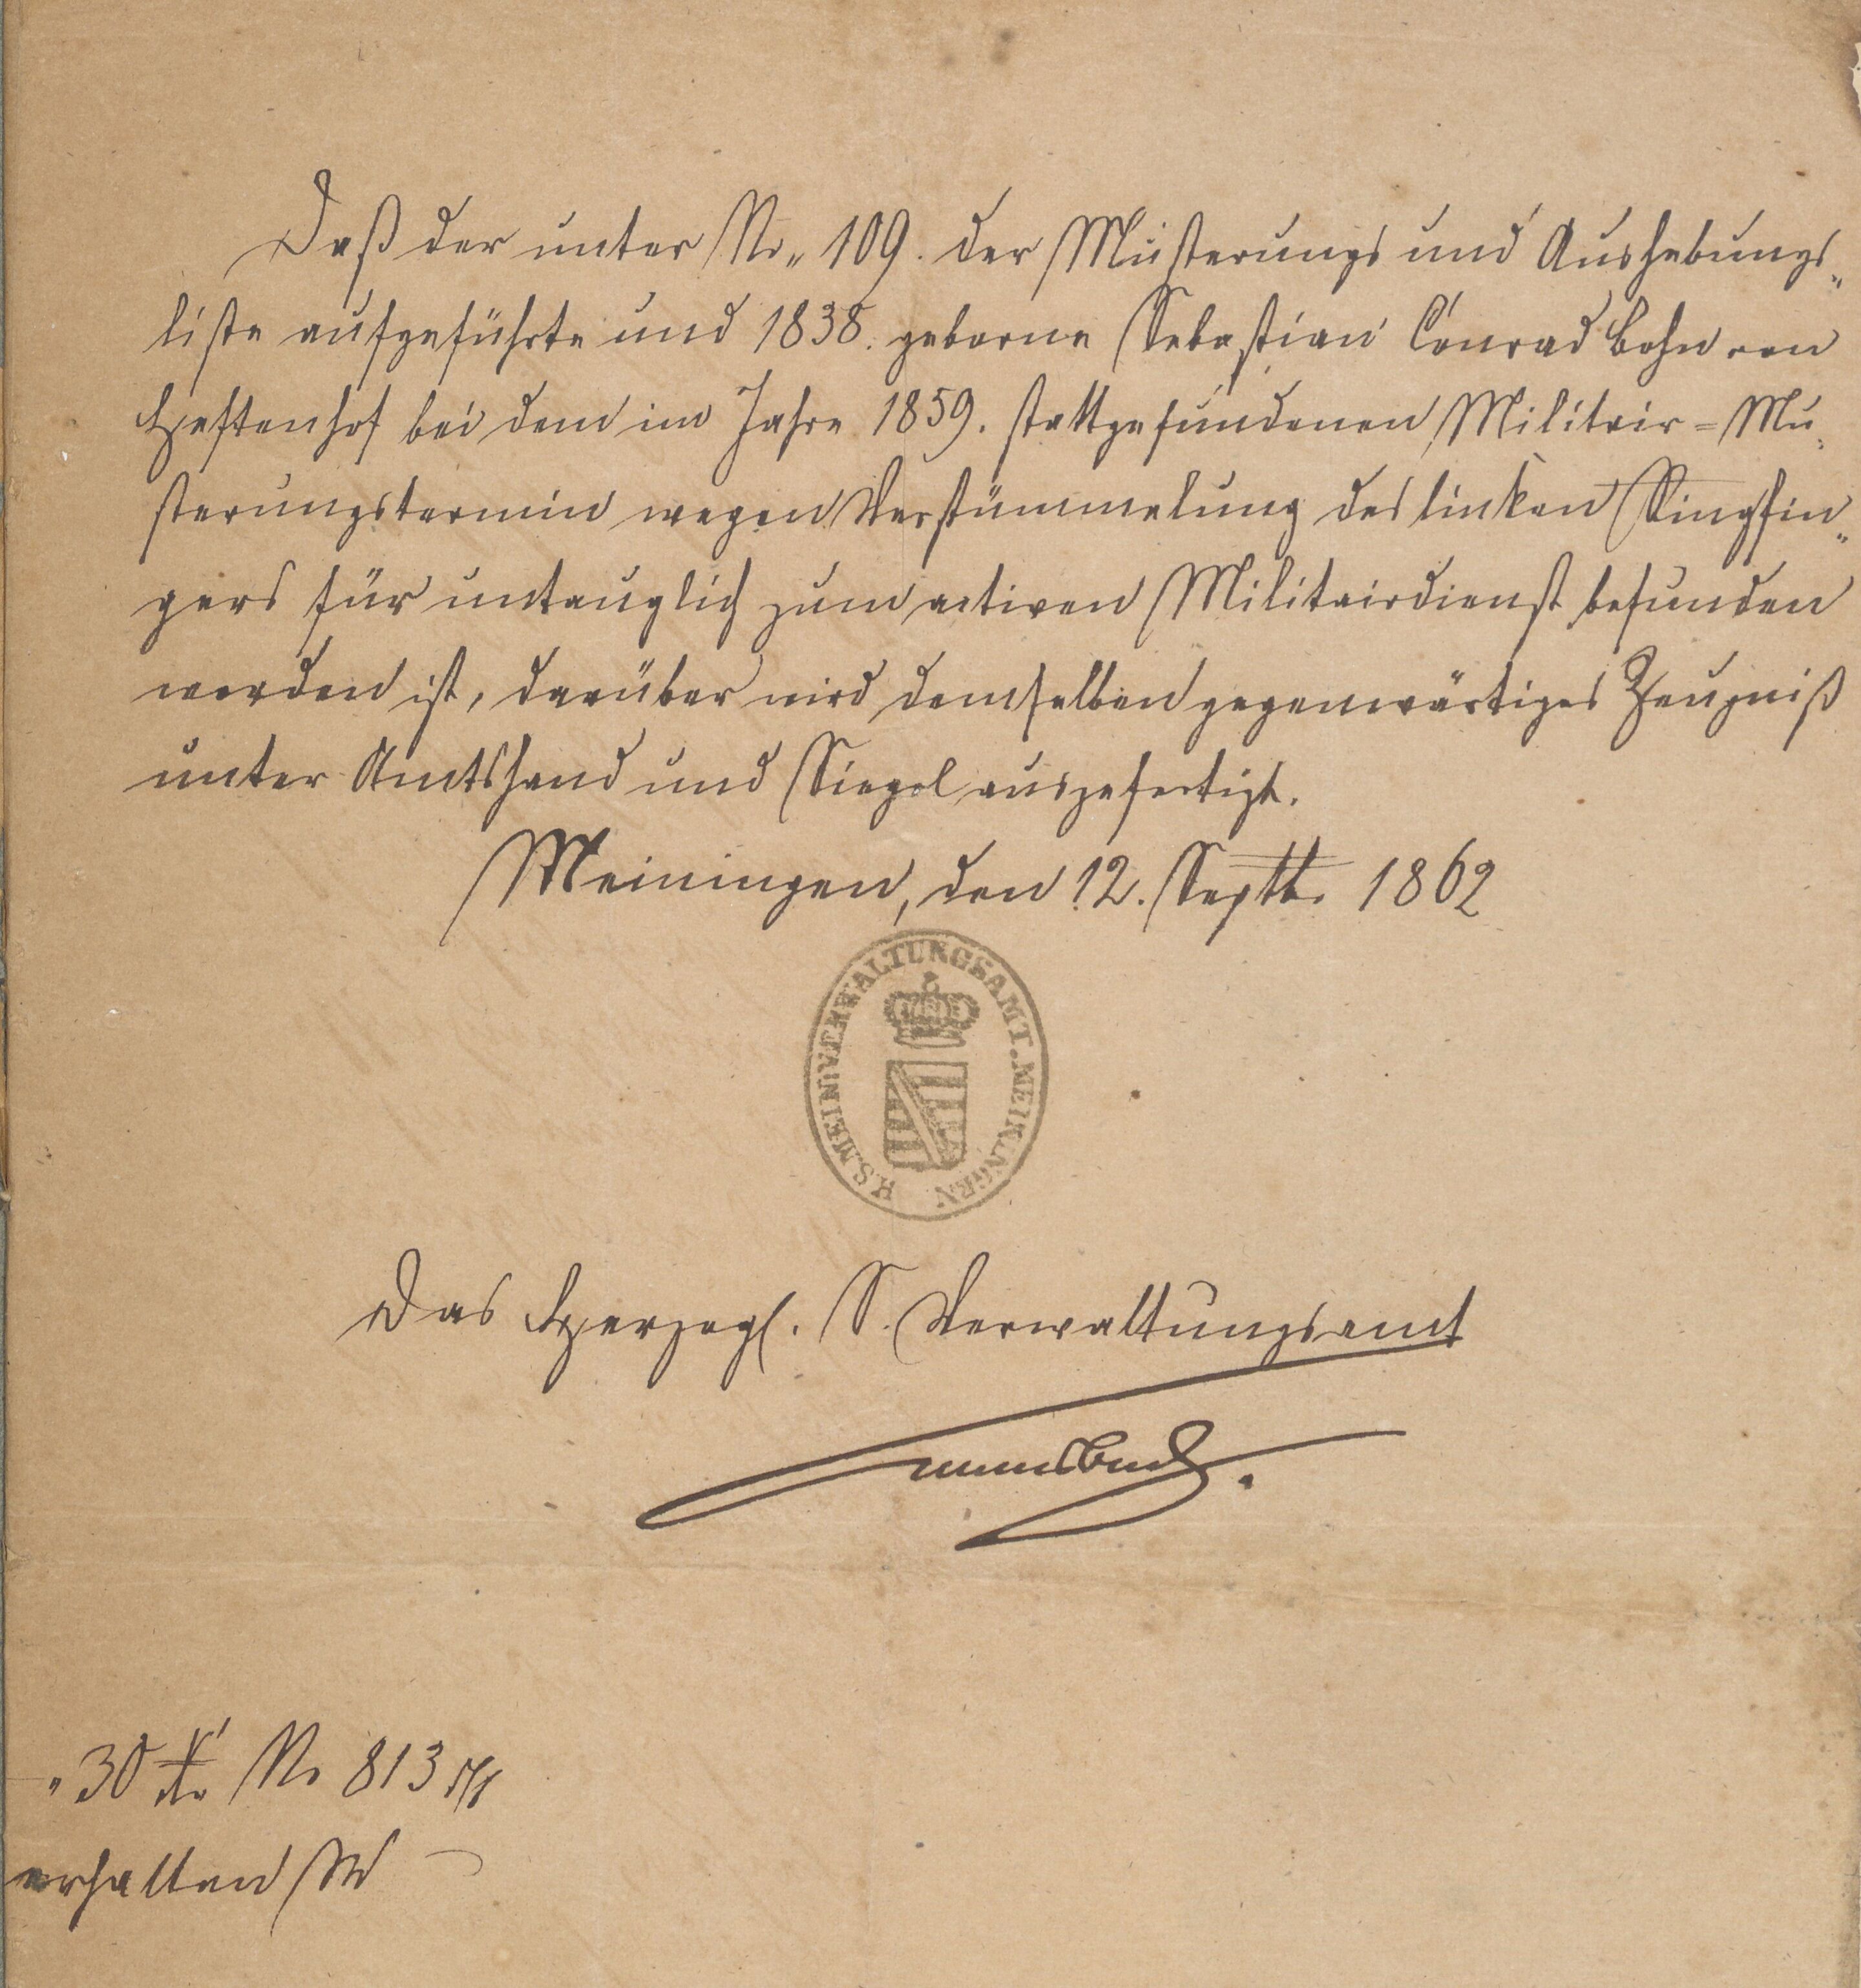 Daß der unter No. 109. der Musterungs und Aushebungs„
liste aufgeführte und 1838. geborne Sebastian Conrad Bohn von
Heftenhof bei dem im Jahre 1859. stattgefundenen Militair=Mu„
sterungstermin wegen Verstümmelung des linken Ringfin„
gers für untauglich zum activen Militairdienst befunden
worden ist, darüber wird demselben gegenwärtiges Zeugniß
unter Amtshand und Siegel ausgefertigt.
Meiningen, den 12. Septbr. 1862
H.S.MEIN.VERWALTUNGSAMT.MEININGEN
Das Herzogl. S. Verwaltungsamt
30 Xr No 813
erhalten